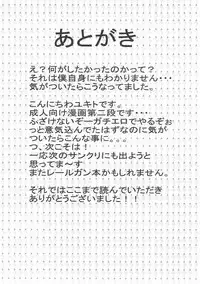 あとがき
え？何がしたかったのかって？
それは僕自身にもわかりません・・・
気がついたらこうなってました。
こんにちわユキトです。
成人向け漫画第二段です。
ふざけないぞーガチエロでやるぞぉっ
と意気込んでたはずなのに気が
ついたらこんな事に。。。
つ、次こそは！
一応次のサンクリにも出ようと
思ってま〜す
またレールガン本かもしれません。
それではここまで読んでいただき
ありがとうございました！！